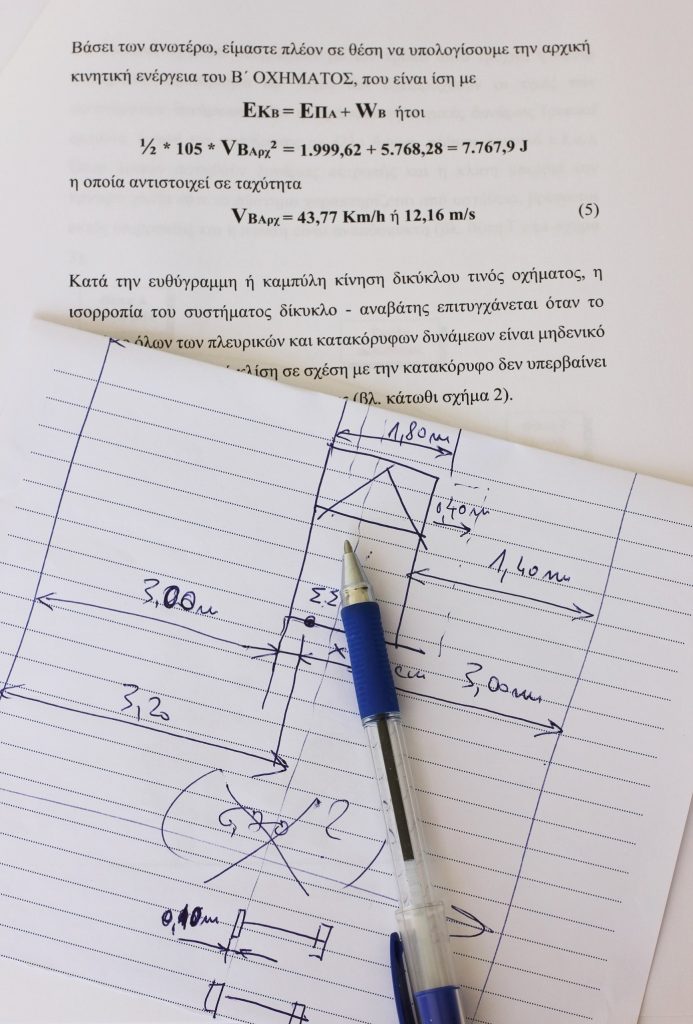 Βάσει των ανωτέρω, είμαστε πλέον σε θέση να υπολογίσουμε την αρχική
κινητική ενέργεια του Β΄ ΟΧΗΜΑΤΟΣ, που είναι ίση με
ΕΚΒ = ΕΠΑ + WΒ ήτοι
½ * 105 * VΒΑρχ² = 1.999,62 + 5.768,28 = 7.767,9 J
η οποία αντιστοιχεί σε ταχύτητα
VΒΑρχ = 43,77 Km/h ή 12,16 m/s (5)
Κατά την ευθύγραμμη ή καμπύλη κίνηση δικύκλου τινός οχήματος, η
ισορροπία του συστήματος δίκυκλο - αναβάτης επιτυγχάνεται όταν το
όλων των πλευρικών και κατακόρυφων δυνάμεων είναι μηδενικό
κλίση σε σχέση με την κατακόρυφο δεν υπερβαίνει
(βλ. κάτωθι σχήμα 2).
1,80m
0,40m
1,40m
3,00m
Σ.Σ
x
cm
3,00m
3,20
2
0,10m